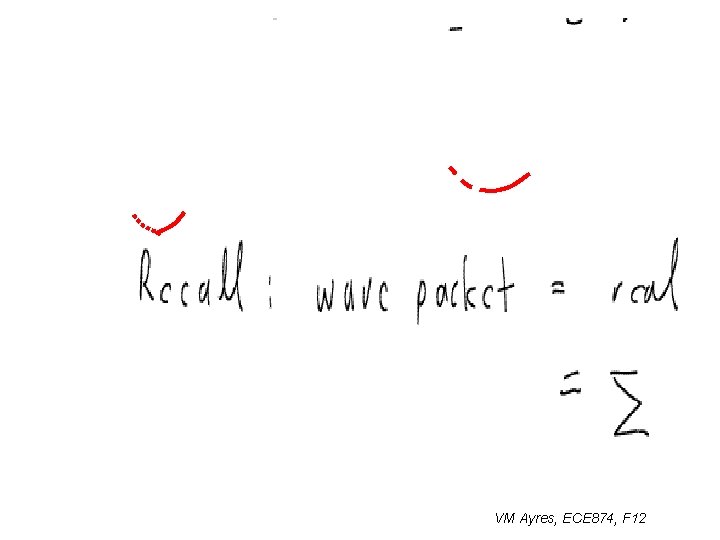 Recall : wave packet = real
= Σ
VM Ayres, ECE874, F12